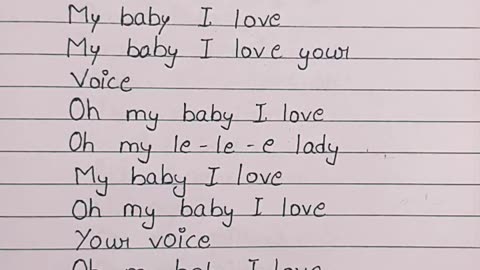 My baby I love
My baby I love your
Voice
Oh my baby I love
Oh my le-le-e lady
My baby I love
Oh my baby I love
Your voice
Oh my I love